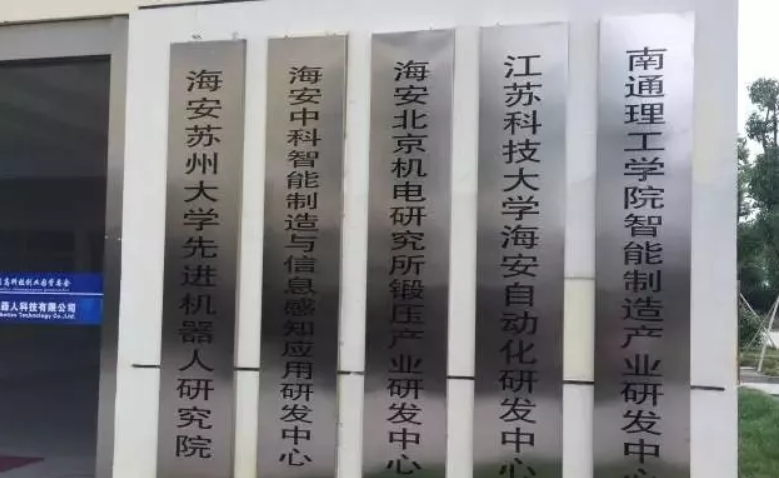 海安苏州大学先进机器人研究院
海安中科智能制造与信息感知应用研发中心
海安北京机电研究所锻压产业研发中心
江苏科技大学海安自动化研发中心
南通理工学院智能制造产业研发中心
高科技创业园管委会
器人科技有限公司
Technology Co.,Ltd.